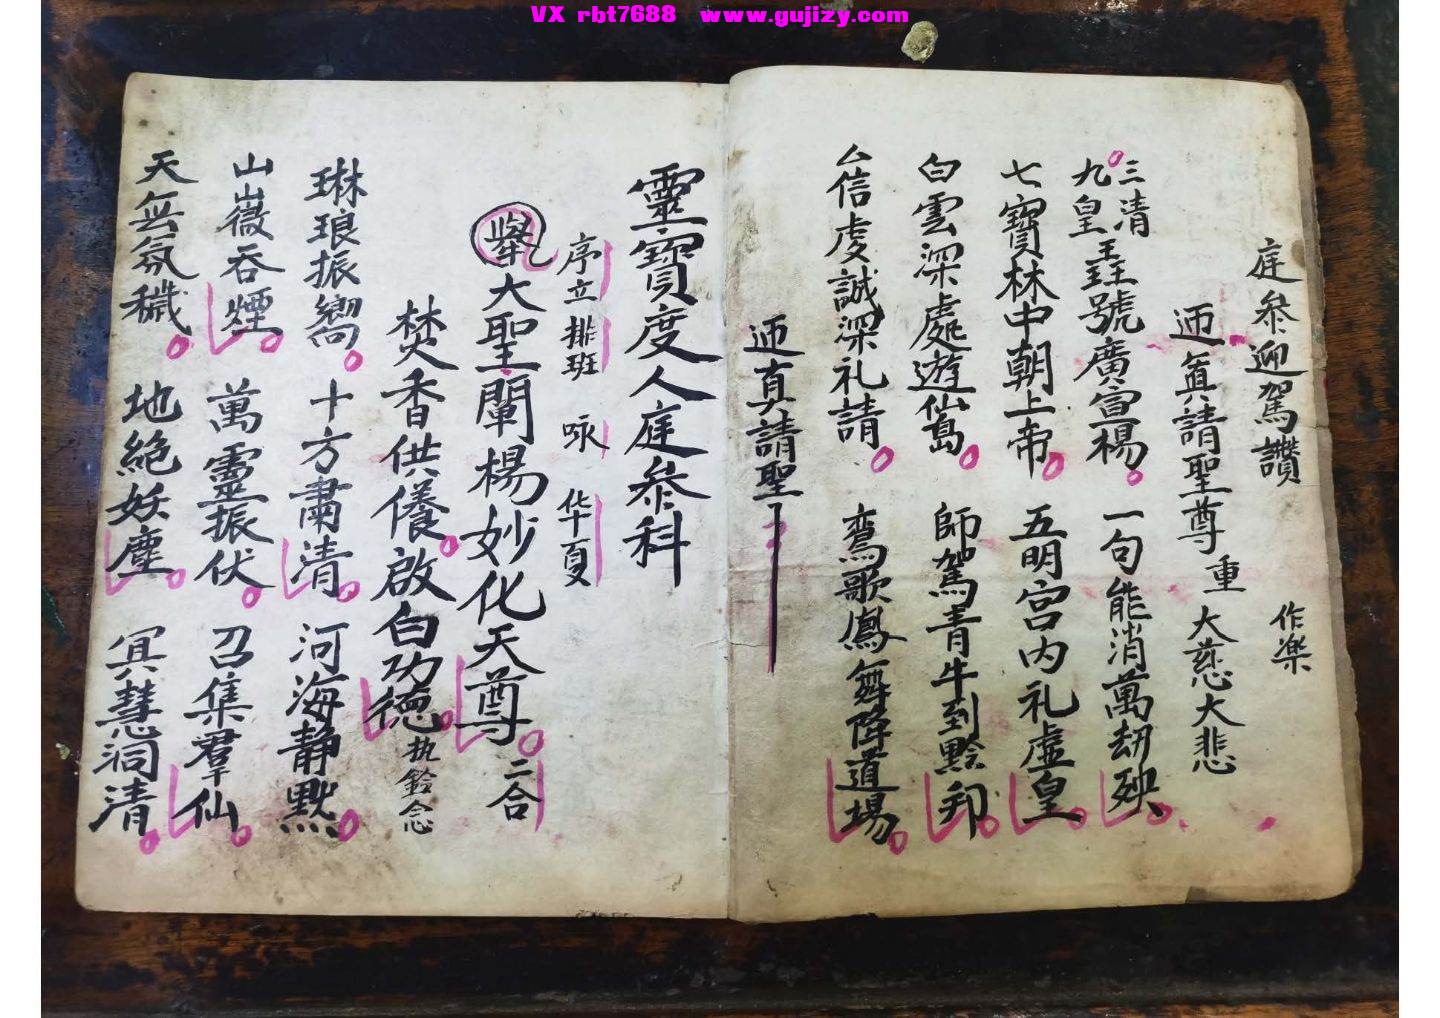 VX rbt7688 www.gujizy.com
庭叅迎駕讚 作楽
迊真請聖尊 重 大慈大悲
三清
九皇𤣩號廣宣楊 一句能消萬刼殃
七寶林中朝上帝 五明宮内礼虚皇
白雲深處遊仙島 師駕青牛到黔邦
厶信虔誠深礼請 鸾歌鳳舞降道場
迊真請聖
靈寶度人庭叅科
序立排班 咏 华夏
舉大聖闡楊妙化天尊 二合
焚香供儀啟白功德 执鈴念
琳琅振嚮 十方肅清 河海静黙
山嶽吞煙 萬靈振伏 召集羣仙
天無氛穢 地絶妖塵 冥慧洞清